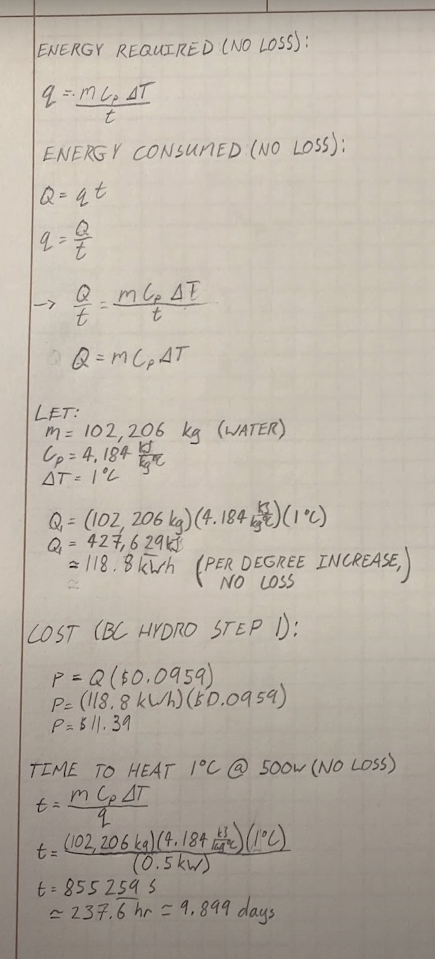 ENERGY REQUIRED (NO LOSS):
q = m Cp ΔT / t
ENERGY CONSUMED (NO LOSS):
Q = q t
q = Q / t
→ Q / t = m Cp ΔT / t
Q = m Cp ΔT
LET:
m = 102,206 kg (WATER)
Cp = 4.184 kJ/kg°C
ΔT = 1°C
Q = (102,206 kg)(4.184 kJ/kg°C)(1°C)
Q = 427,629 kJ
≈ 118.8 kWh (PER DEGREE INCREASE, NO LOSS)
COST (BC HYDRO STEP 1):
P = Q ($0.0959)
P = (118.8 kWh)($0.0959)
P = $11.39
TIME TO HEAT 1°C @ 500W (NO LOSS)
t = m Cp ΔT / q
t = (102,206 kg)(4.184 kJ/kg°C)(1°C) / (0.5 kW)
t = 855259 s
≈ 237.6 hr ≈ 9.899 days